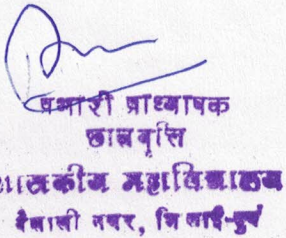 प्रभारी प्राध्यापक
छात्रवृत्ति
शासकीय महाविद्यालय
वैशाली नगर, भिलाई-दुर्ग